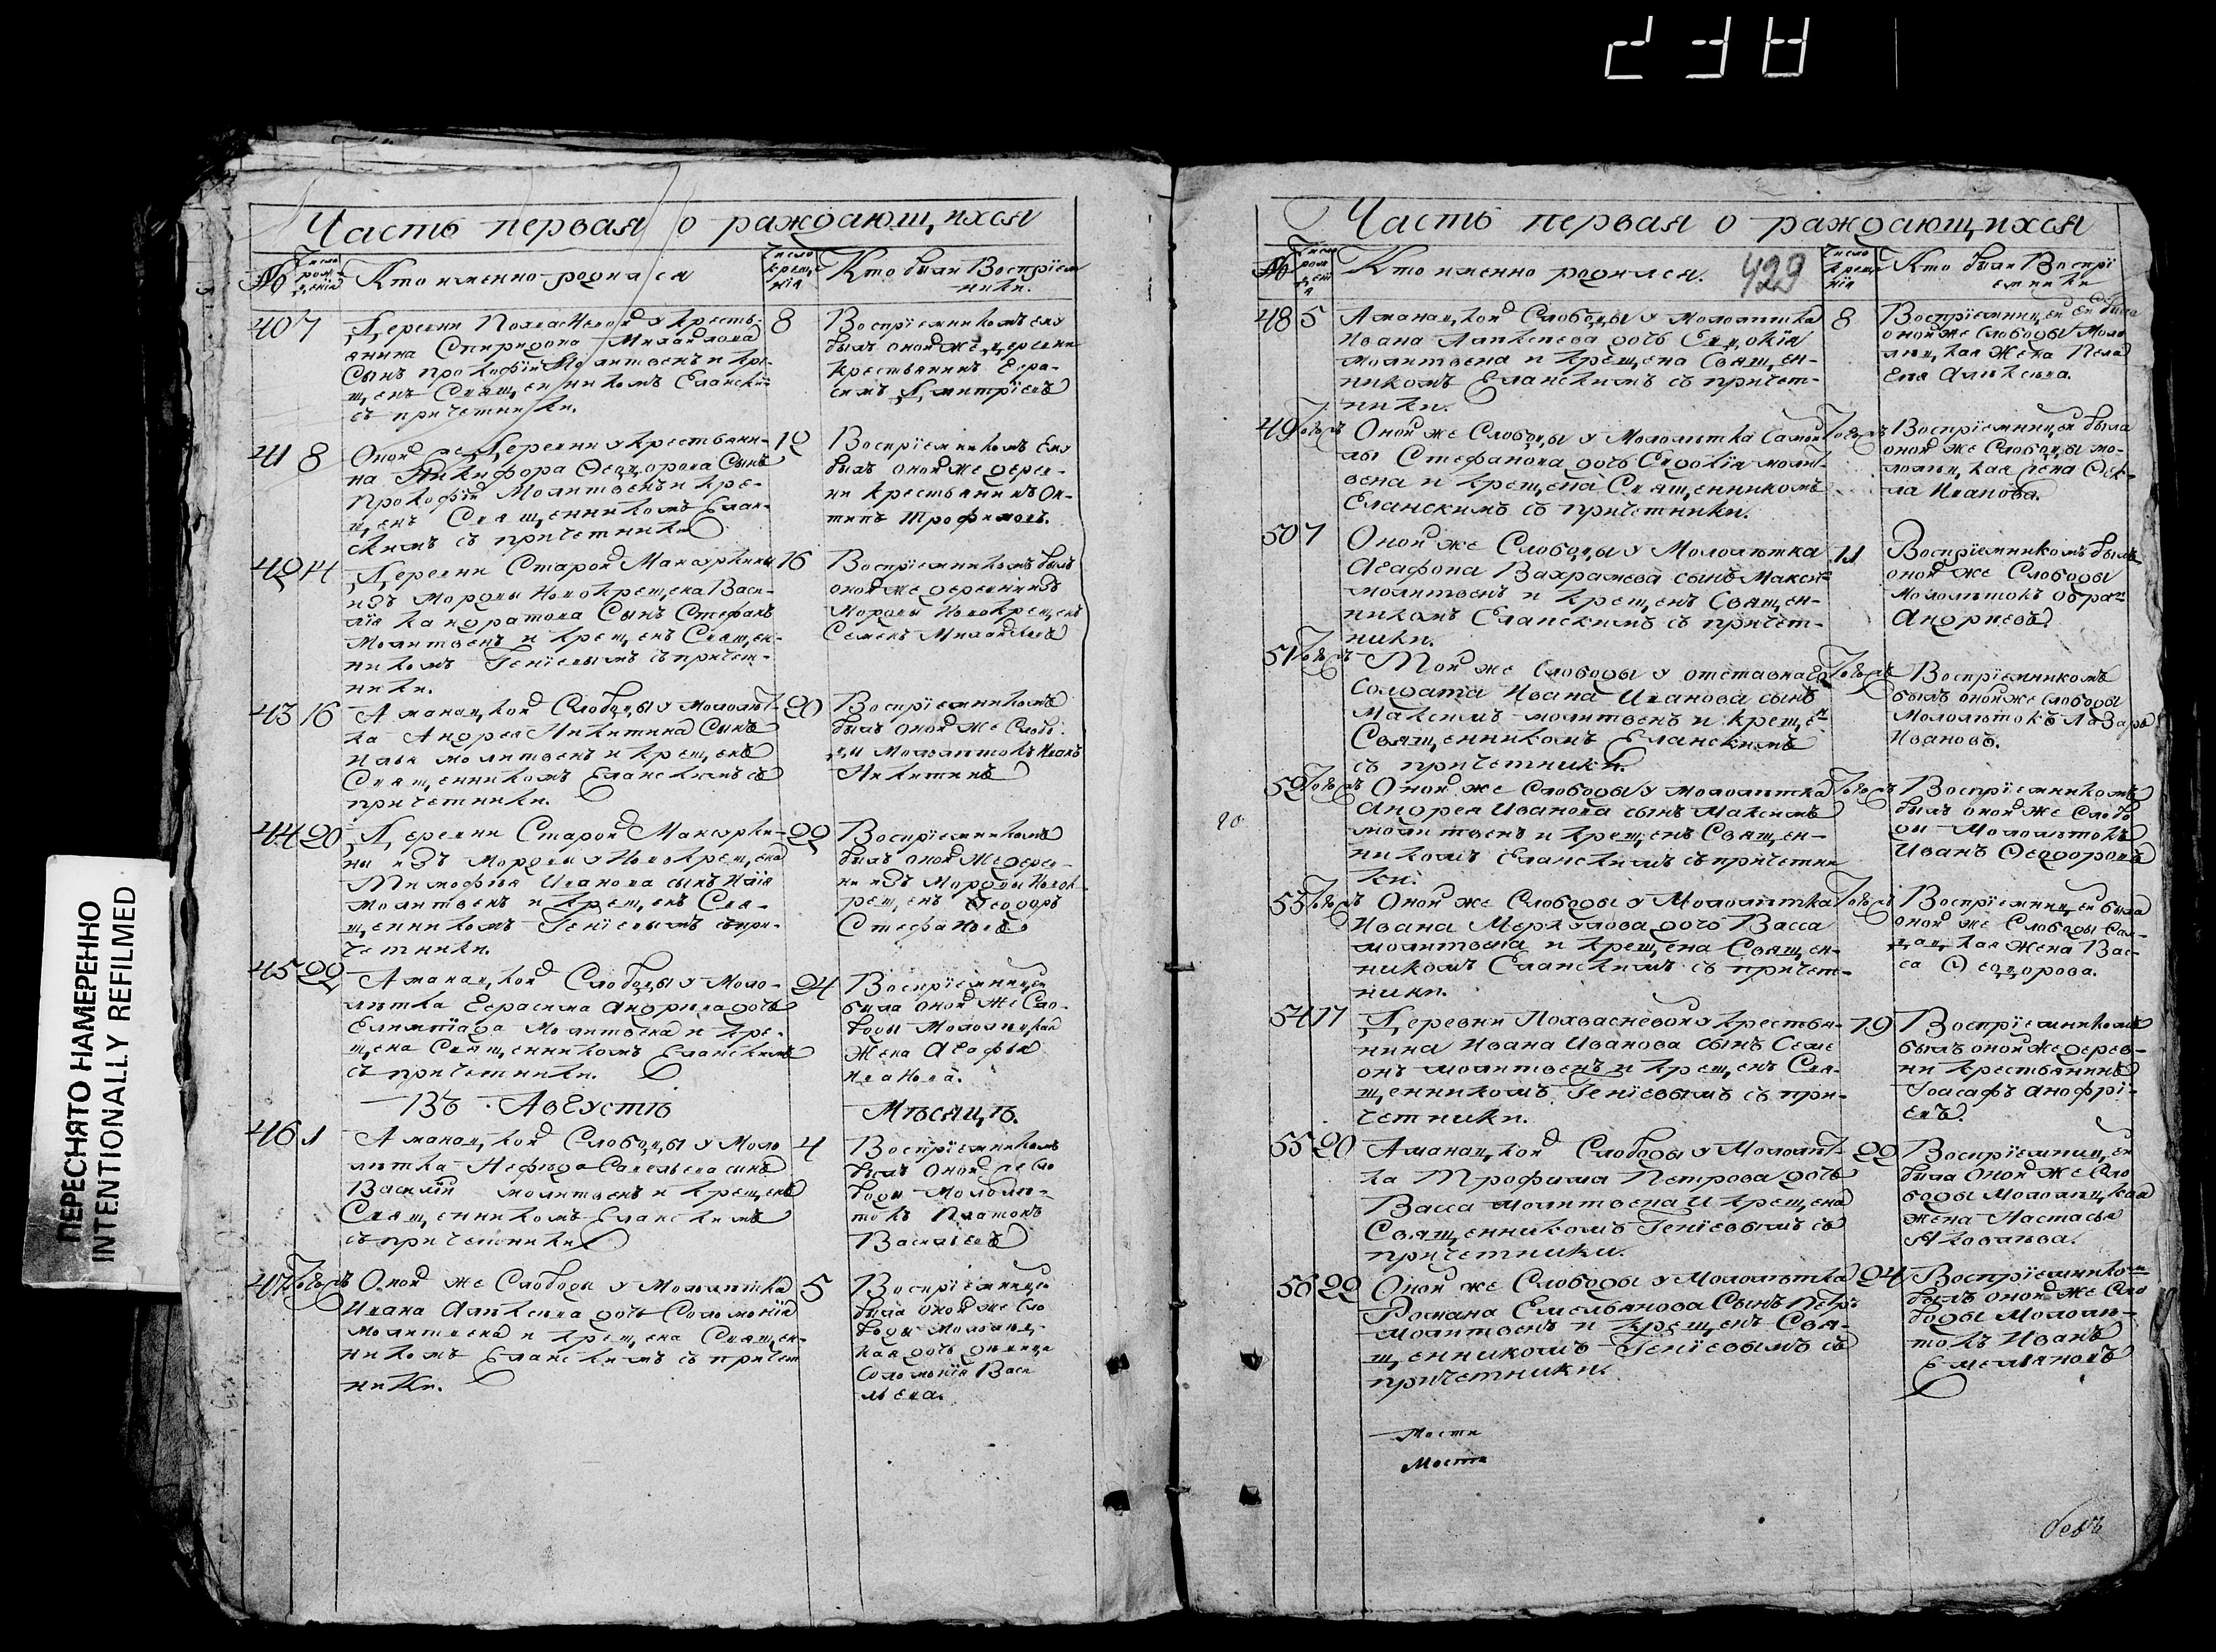 238
ПЕРЕСНЯТО НАМЕРЕННО
INTENTIONALLY REFILMED
Часть первая о раждающихся
№
Число рождения
Кто именно родился
Число крещения
Кто были Восприем
ники.
40 7 Деревни у крестья-
янина Спиридона Михайлова
Сынъ прокофій Молитвенъ и кре-
щенъ Священникомъ Еланскимъ
съ причетники.
8 Воспріемникомъ ему
былъ оной же деревни
крестьянинъ Гера-
симъ Дмитріевъ
41 8 Оной же Деревни у крестьяни-
на Никифора Ѳеодорова Сынъ
Прокофій Молитвенъ и кре-
щенъ Священникомъ Елан-
скимъ съ причетники
12 Воспріемникомъ Ему
былъ оной же дерев-
ни крестьянинъ Он-
типъ Трофимовъ.
42 14 Деревни Старой Мачкурины
изъ Мордвы Новокрещена Васи-
лія Кандратова Сынъ Стефанъ
Молитвенъ и крещенъ Священ-
никомъ Геніевымъ съ причет-
ники.
16 Воспріемникомъ былъ
оной же деревни изъ
Мордвы Новокрещенъ
Семенъ Михайловъ
43 16 Аманацкой Слободы у Молольт-
ка Андрея Никитина Сынъ
Илья молитвенъ и крещенъ
Священникомъ Еланскимъ съ
причетники.
20 Воспріемникомъ
былъ оной же Слобо
ды Молольтокъ Иванъ
Никитинъ
44 20 Деревни Старой
ны изъ Мордвы у Новокрещена
Тимофея Иванова сынъ Илія
молитвенъ и крещенъ Свя-
щенникомъ Геніевымъ съ при-
четники.
22 Воспріемникомъ
былъ оной же дерев-
ни изъ Мордвы Новок-
рещенъ Ѳеодоръ
Стефановъ
45 22 Аманацкой Слободы у Моло-
льтка Герасима Андриева дочь
Елимпіада Молитвена и кре-
щена Священникомъ Еланскимъ
съ причетники.
24 Воспріемницею
была оной же Сло-
боды Молольцкая
Жена Агафья
Иванова.
Въ Августѣ
Мѣсяцѣ.
46 1 Аманацкой Слободы у Моло
льтка Нефеда Савельева сынъ
Василій молитвенъ и крещенъ
Священникомъ Еланскимъ
съ причетники
4 Воспріемникомъ
былъ оной же Сло
боды Молольт-
токъ Платонъ
Васильевъ
47 Оной же Слободы у Молольтка
Ивана Алѣксѣева дочь Соломонія
Молитвена и крещена Священ-
никомъ Еланскимъ съ причет
ники.
5 Воспріемницею
была оной же Сло
боды Молольц-
кая дочь девица
Соломонія Васи
льева.
Часть первая о раждающихся
№
Число рожденія
Кто именно родился.
429
Число крещенія
Кто были Воспрі
емники
48 5 Аманацкой Слободы у Молольтка
Ивана Алѣксѣева дочь Евдокія
молитвена и крещена Священ-
никомъ Еланскимъ съ причет-
ники.
8 Воспріемницей ей была
оной же Слободы Моло
льцкая жена Пела
гея Алѣксѣева.
49 Оной же Слободы у Молольтка Самой
лы Стефанова дочь Евдокія молит-
вена и крещена Священникомъ
Еланскимъ съ причетники.
Воспріемницей была
оной же Слободы мо-
лольцкая жена Ѳек-
ла Иванова.
50 7 Оной же Слободы у Молольтка
Агафона Вахрамева сынъ Макси
молитвенъ и крещенъ Священ-
никомъ Еланскимъ съ причет-
ники.
11 Воспріемникомъ былъ
оной же Слободы
Молольтокъ
Андриевъ
51 Той же Слободы у отставнаго
Солдата Ивана Иванова сынъ
Максимъ молитвенъ и крещен
Священникомъ Еланскимъ
съ причетники.
Воспріемникомъ
былъ оной же слободы
Молольтокъ Лазарь
Ивановъ.
52 Оной же Слободы у молольтка
Андрея Иванова сынъ Максимъ
молитвенъ и крещенъ Священ-
никомъ Еланскимъ съ причетни
ки.
Воспріемникомъ
былъ оной же Слобо
ды Молольтокъ
Иванъ Ѳеодоровъ
53 Оной же Слободы у Молольтка
Ивана Меркулова дочь Васса
молитвена и крещена Священ-
никомъ Еланскимъ съ причет-
ники.
Воспріемницей была
оной же Слободы Сол-
дацкая жена Вас-
са Ѳеодорова.
54 17 Деревни Похвасневой у крестья-
нина Ивана Иванова сынъ Семе
онъ молитвенъ и крещенъ Свя-
щенникомъ Геніевымъ съ при-
четники.
19 Воспріемникомъ
былъ оной же дерев-
ни крестьянинъ
Іоасафъ Анофрі-
евъ.
55 20 Аманацкой Слободы у Молольт-
ка Трофима Петрова дочь
Васса молитвена и крещена
Священникомъ Геніевымъ съ
причетники.
22 Воспріемницей
была оной же Сло
боды Молольцкая
жена Настасья
Яковлева.
56 22 Оной же Слободы у Молольтка
Романа Емельянова Сынъ Петръ
молитвенъ и крещенъ Свя-
щенникомъ Геніевымъ съ
причетники.
24 Воспріемником
былъ оной же Сло
боды Молольт-
токъ Иванъ
Емельяновъ